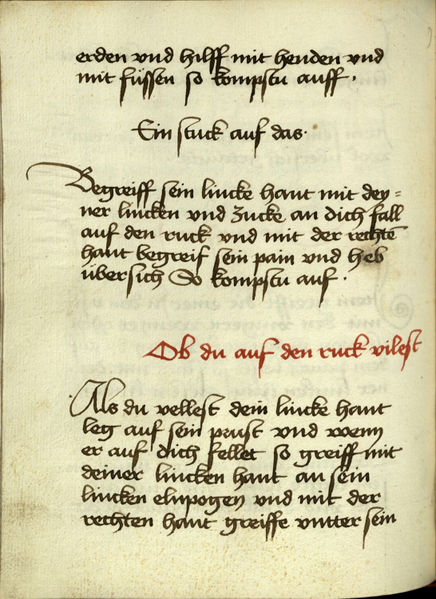 erden vnd hilff mit henden vnd
mit füssen so kompstu auff.
Ein stuck auf das.
Begreiff sein lincke hant mit dey=
ner lincken vnd zucke an dich fall
auf den ruck vnd mit der rechtē
hant begreif sein pain vnd heb
übersich So kompstu auf.
Ob du auf den ruck vilest
Als du vellest dein lincke hant
leg auf sein prust vnd wenn
er auf dich fellet so greiff mit
deiner lincken hant an sein
lincken elnpogen vnd mit der
rechten hant greiffe vntter sein